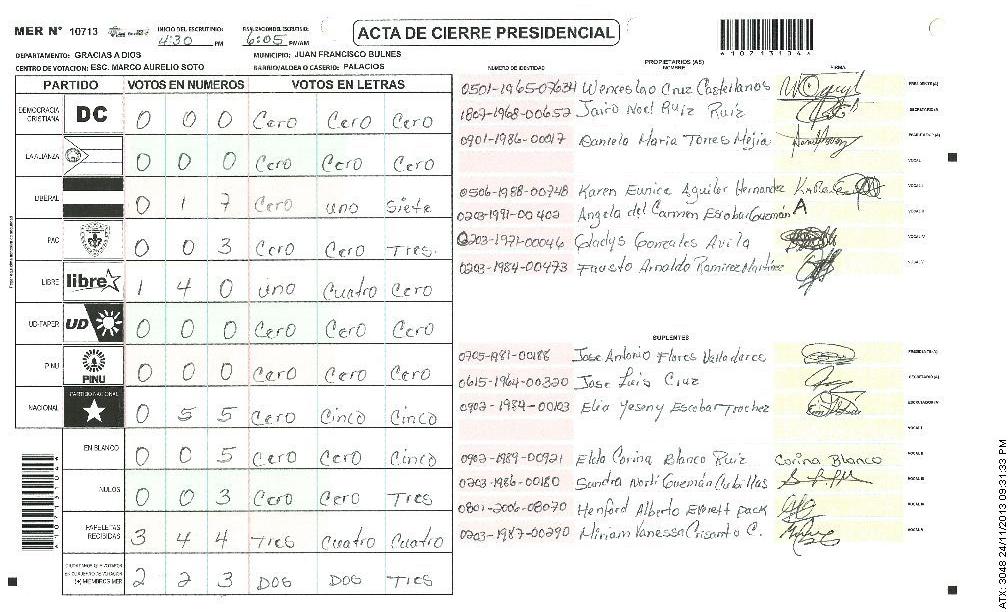 MER N° 10713
INICIO DEL ESCRUTINIO: 4:30 PM
FINALIZACION DEL ESCRUTINIO: 6:05 PM/AM
ACTA DE CIERRE PRESIDENCIAL
*10713104*
DEPARTAMENTO: GRACIAS A DIOS
MUNICIPIO: JUAN FRANCISCO BULNES
CENTRO DE VOTACION: ESC. MARCO AURELIO SOTO
BARRIO/ALDEA O CASERIO: PALACIOS
PARTIDO VOTOS EN NUMEROS VOTOS EN LETRAS
DEMOCRACIA CRISTIANA DC 0 0 0 Cero Cero Cero
LA ALIANZA 0 0 0 Cero Cero Cero
LIBERAL 0 1 7 Cero uno Siete
PAC 0 0 3 Cero Cero Tres.
LIBRE libre 1 4 0 uno Cuatro Cero
UD-FAPER UD 0 0 0 Cero Cero Cero
PINU PINU 0 0 0 Cero Cero Cero
NACIONAL PARTIDO NACIONAL 0 5 5 Cero Cinco Cinco
EN BLANCO 0 0 5 Cero Cero Cinco
NULOS 0 0 3 Cero Cero Tres
PAPELETAS RECIBIDAS 3 4 4 Tres Cuatro Cuatro
CIUDADANOS QUE VOTARON EN CUADERNO DE VOTACION (+) MIEMBROS MER 2 2 3 DOS DOS Tres
PROPIETARIOS (AS)
NUMERO DE IDENTIDAD NOMBRE FIRMA
0501-1965-07634 Wenceslao Cruz Castellanos PRESIDENTE(A)
1807-1968-00652 Jairo Noel Ruiz Ruiz SECRETARIO(A)
0901-1986-00017 Daniela Maria Torres Mejia ESCRUTADOR(A)
VOCAL I
0506-1988-00748 Karen Eunice Aguilar Hernandez VOCAL II
0203-1991-00402 Angela del Carmen Escobar Guzmán A VOCAL III
0203-1971-00046 Gladys Gonzales Avila VOCAL IV
0203-1984-00473 Fausto Arnaldo Ramirez Martinez VOCAL V
SUPLENTES
0705-1981-00188 Jose Antonio Flores Valladares PRESIDENTE(A)
0615-1964-00320 Jose Luis Cruz SECRETARIO (A)
0902-1984-00103 Elia Yeseny Escobar Trochez ESCRUTADOR(A)
VOCAL I
0902-1989-00921 Elda Corina Blanco Ruiz Corina Blanco VOCAL II
0203-1986-00180 Sandra Norli Guzmán Cubillas VOCAL III
0801-2006-08070 Henford Alberto Everett pack VOCAL IV
0203-1987-00290 Miriam Vanessa Crisanto C. VOCAL V
ATX: 3048 24/11/2013 09:31:33 PM